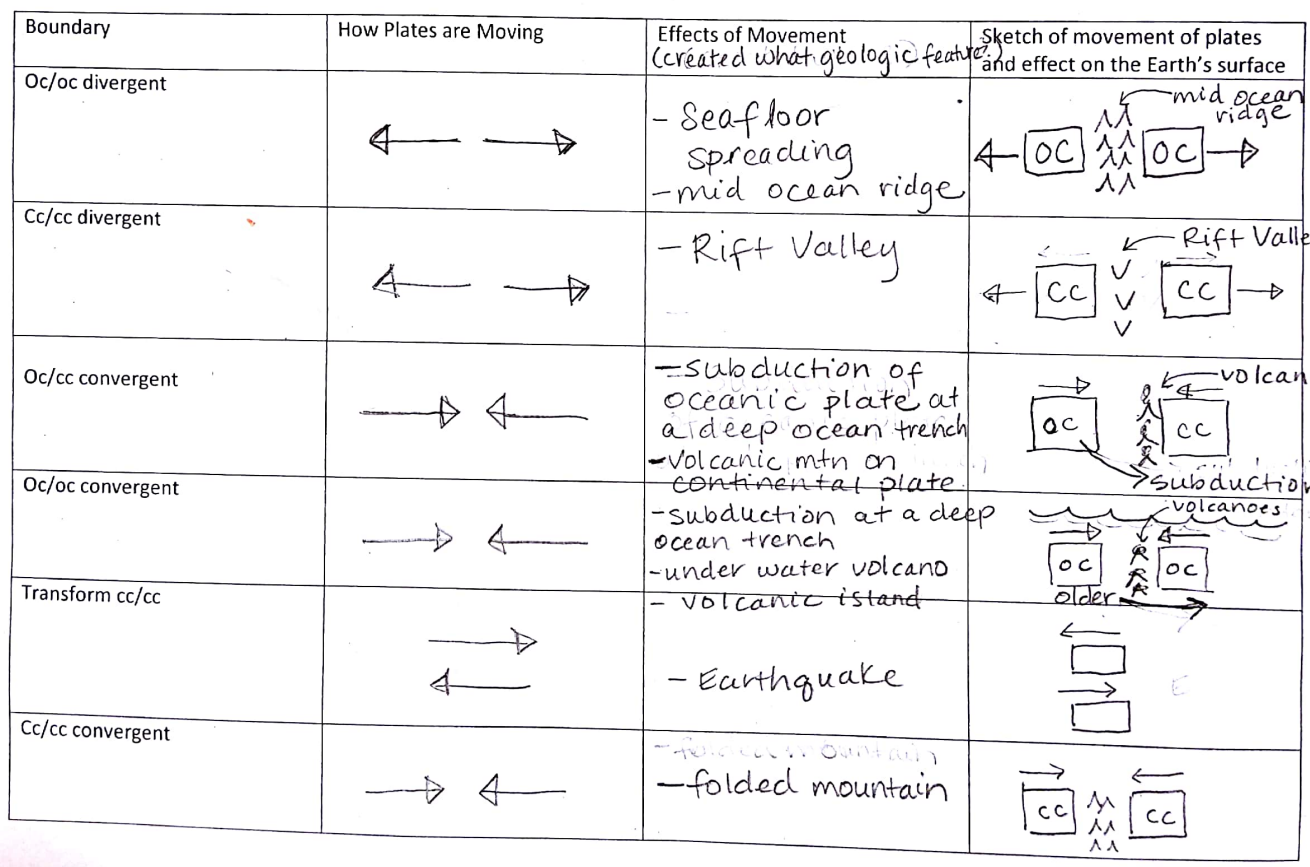 Boundary
How Plates are Moving
Effects of Movement
(created what geologic feature?)
Sketch of movement of plates
and effect on the Earth's surface
Oc/oc divergent
- Seafloor
spreading
- mid ocean ridge
mid ocean
ridge
OC
OC
Cc/cc divergent
- Rift Valley
Rift Valle
CC
CC
Oc/cc convergent
- subduction of
oceanic plate at
a deep ocean trench
- volcanic mtn on
continental plate
volcan
OC
CC
subduction
Oc/oc convergent
- subduction at a deep
ocean trench
- under water volcano
- volcanic island
volcanoes
OC
OC
older
Transform cc/cc
- Earthquake
E
Cc/cc convergent
- folded mountain
- folded mountain
CC
CC